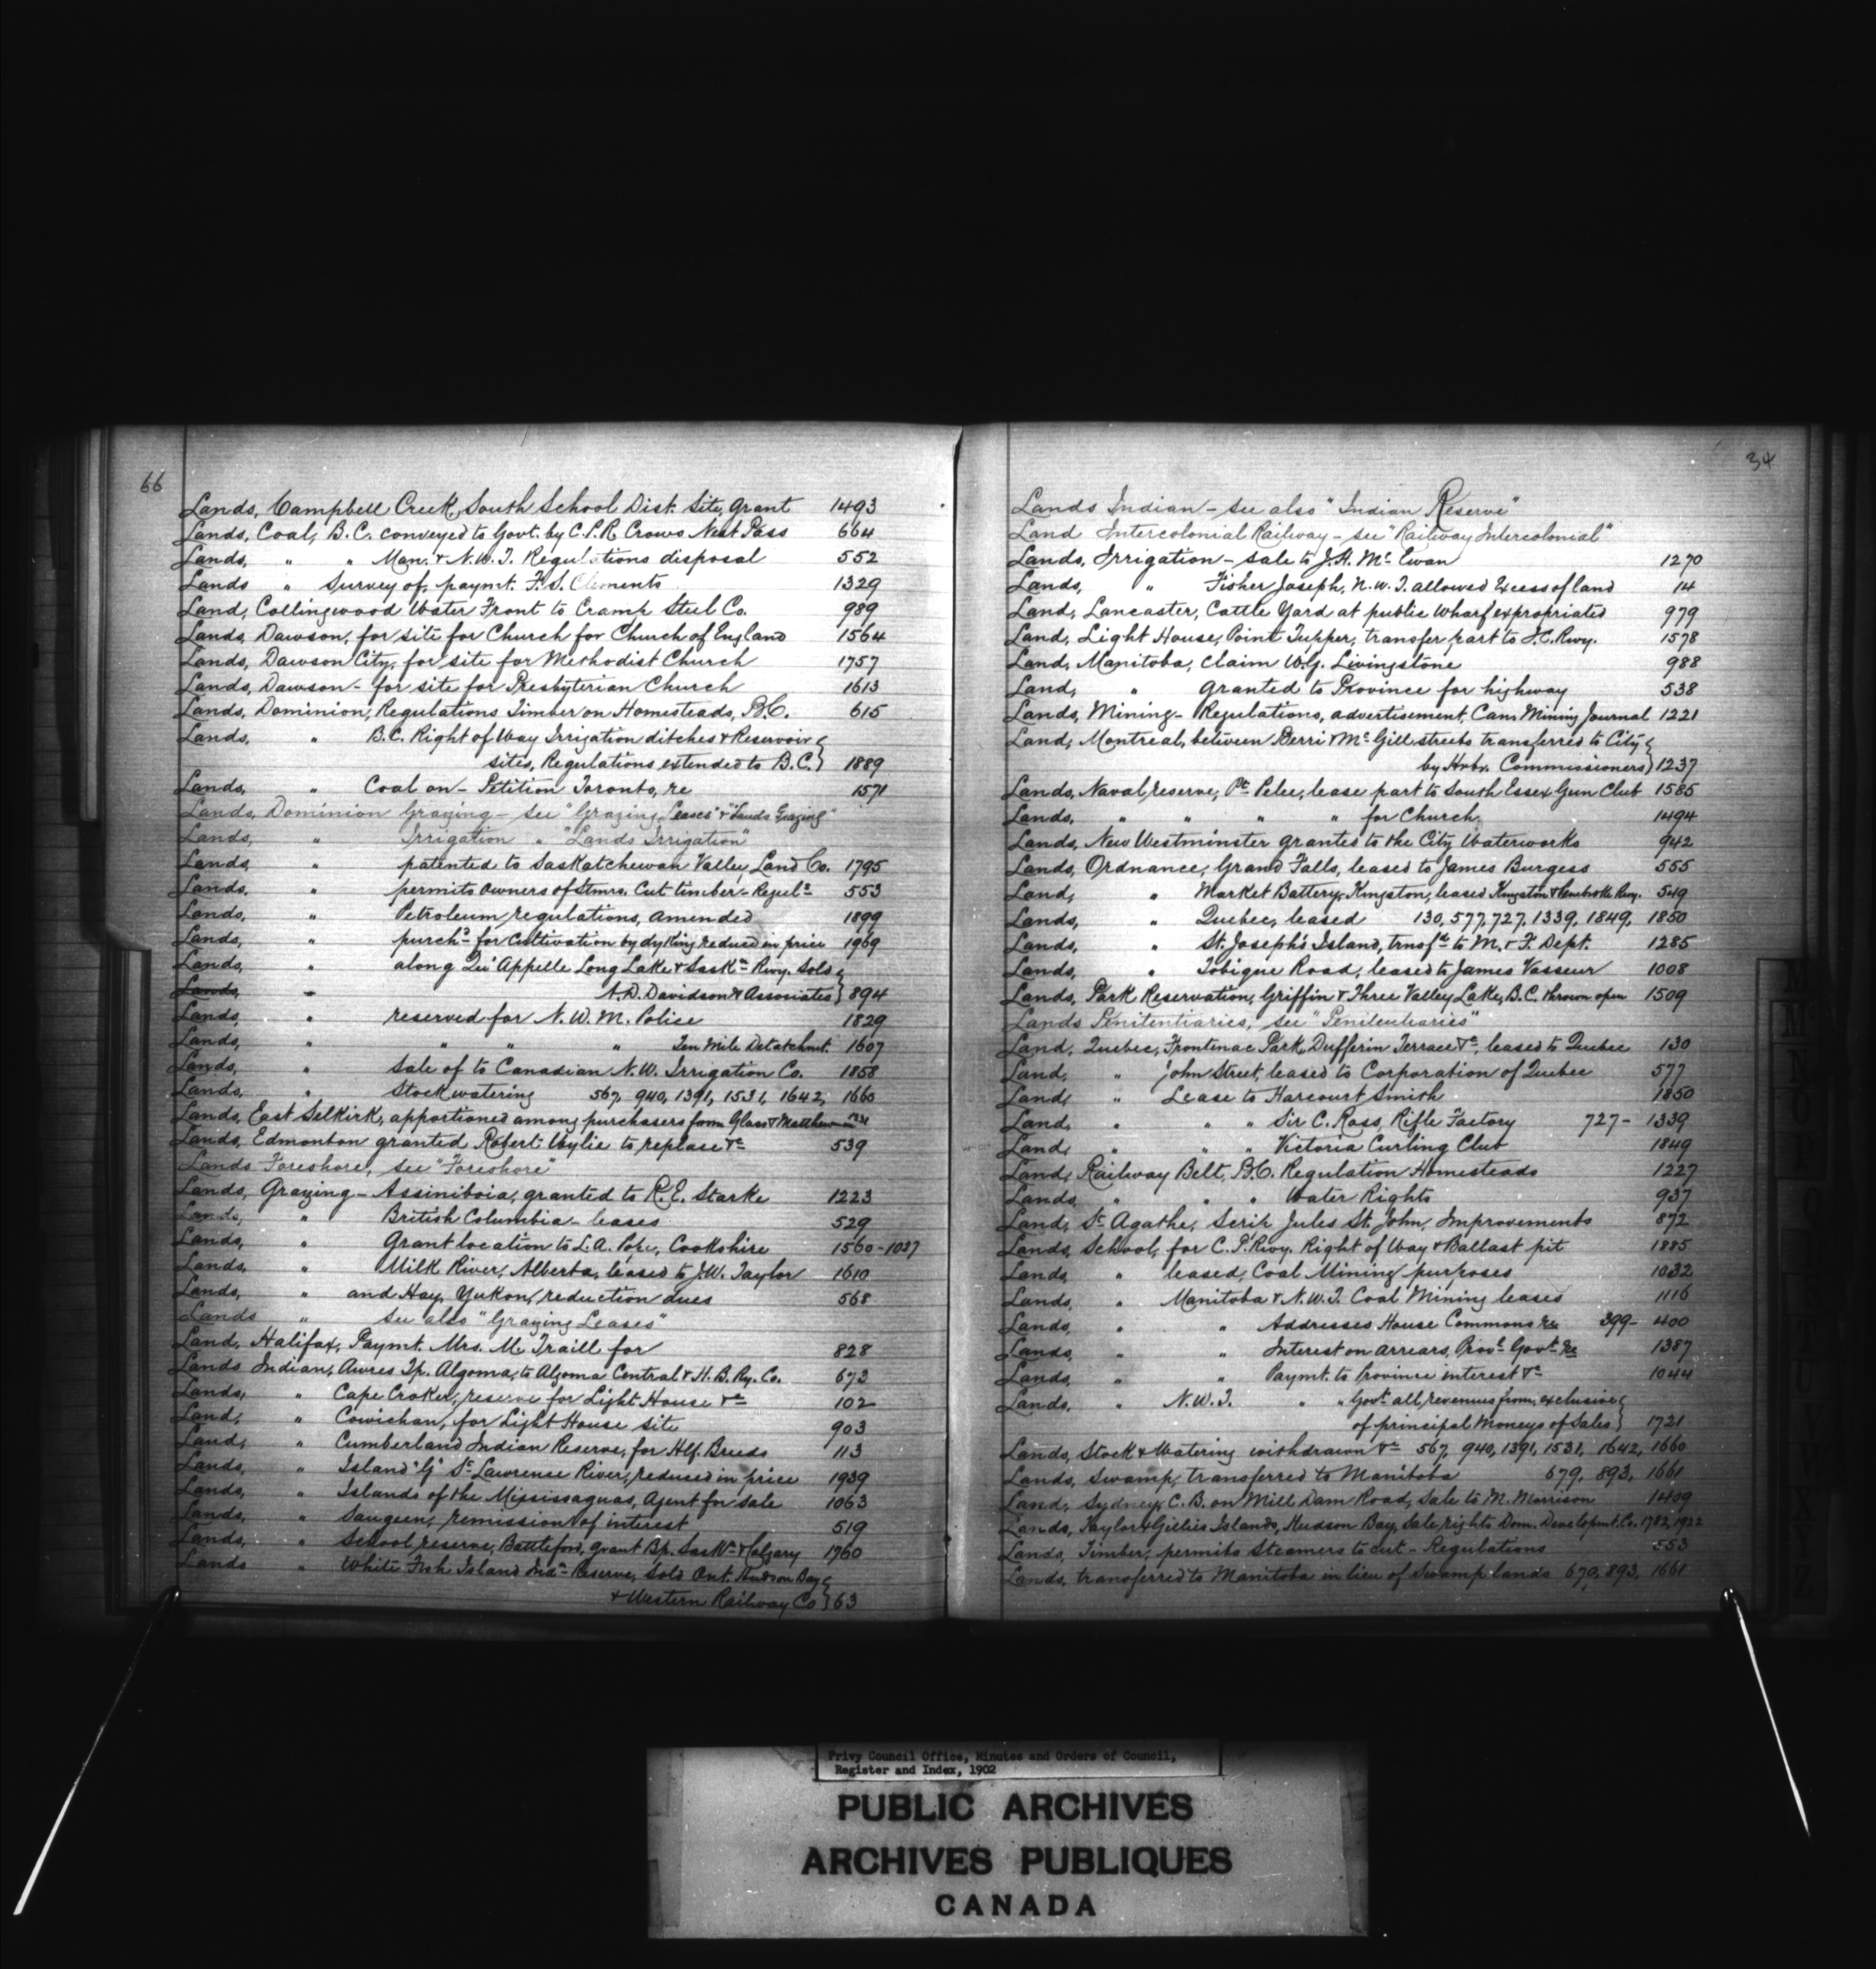 66
Lands, Campbell Creek, South School Dist. Site, Grant 1493
Lands, Coal, B.C. conveyed to Govt. by C.P.R. Crows Nest Pass 664
Lands, " " Man. & N.W.T. Regulations disposal 552
Lands " Survey of, paymt. F.S. Clements 1329
Land, Collingwood Water Front to Cramp Steel Co. 989
Lands, Dawson, for site for Church for Church of England 1564
Lands, Dawson City, for site for Methodist Church 1757
Lands, Dawson - for site for Presbyterian Church 1613
Lands, Dominion, Regulations Timber on Homesteads, B.C. 615
Lands, " B.C. Right of Way Irrigation ditches & Reservoir
sites, Regulations extended to B.C.} 1889
Lands, " Coal on - Petition Toronto, re 1571
Lands, Dominion Grazing - see "Grazing Leases" & "Lands Grazing"
Lands, " Irrigation " "Lands Irrigation"
Lands, " patented to Saskatchewan Valley Land Co. 1795
Lands, " permits owners of Stmrs. Cut timber - Regulⁿˢ 553
Lands, " Petroleum, regulations, amended 1899
Lands, " purchᵈ for cultivation by dyking reduced in price 1969
Lands, " along Qu'Appelle Long Lake & Saskⁿ Rwy. Sold
Lands, " A.D. Davidson & Associates} 894
Lands, " reserved for N.W.M. Police 1829
Lands, " " " " Ten Mile Detatchmt. 1607
Lands, " Sale of to Canadian N.W. Irrigation Co. 1858
Lands, " Stock watering 567, 940, 1391, 1531, 1642, 1660
Lands, East Selkirk, apportioned among purchasers from Glass & Matthewson
Lands, Edmonton granted Robert Wylie to replace &c 539
Lands Foreshore, see "Foreshore"
Lands, Grazing - Assiniboia, granted to R.E. Starke 1223
Lands, " British Columbia - leases 529
Lands, " Grant location to L.A. Pope, Cookshire 1560-1037
Lands, " Milk River, Alberta, leased to J.W. Taylor 1610
Lands, " and Hay, Yukon, reduction dues 568
Lands " see also "Grazing Leases"
Land, Halifax, Paymt. Mrs. M. Traill for 828
Lands Indian, Awres Tp. Algoma, to Algoma Central & H.B. Ry. Co. 673
Lands, " Cape Croker, reserve for Light House &c 102
Land, " Cowichan, for Light House site 903
Land, " Cumberland Indian Reserve, for Hlf. Breeds 113
Lands, " Island "G" St. Lawrence River, reduced in price 1939
Lands, " Islands of the Mississaguas, Agent for sale 1063
Lands, " Saugeen, remission of interest 519
Lands, " School reserve, Battleford, grant Bp. Saskⁿ & Calgary 1760
Lands " White Fish Island Indⁿ Reserve, Sold Ont. Hudson Bay
& Western Railway Co} 63
34
Lands Indian - see also "Indian Reserve"
Land Intercolonial Railway - see "Railway Intercolonial"
Lands, Irrigation - sale to J.H. McEwan 1270
Lands, " Fisher Joseph, N.W.T. allowed Excess of land 14
Land, Lancaster, Cattle Yard at public wharf expropriated 979
Land, Light House, Point Tupper, transfer part to I.C. Rwy. 1578
Land, Manitoba, claim W.G. Livingstone 988
Land, " granted to Province for highway 538
Lands, Mining - Regulations, advertisement, Canⁿ Mining Journal 1221
Land, Montreal, between Berri & McGill streets transferred to City
by Hrbr. Commissioners} 1237
Lands, Naval reserve, Pt. Pelee, lease part to South Essex Gun Club 1585
Lands, " " " " for Church 1494
Lands, New Westminster granted to the City Waterworks 942
Lands, Ordnance, Grand Falls, leased to James Burgess 555
Land, " Market Battery, Kingston, leased Kingston & Pembroke Rwy. 549
Lands, " Quebec, leased 130, 577, 727, 1339, 1849, 1850
Lands, " St. Joseph's Island, trnsfᵈ to M. & F. Dept. 1285
Lands, " Tobique Road, leased to James Vasseur 1008
Lands, Park Reservation, Griffin & Three Valley Lake, B.C. thrown open 1509
Lands Penitentiaries, see "Penitentiaries"
Land, Quebec, Frontenac Park, Dufferin Terrace &c, leased to Quebec 130
Land, " John Street, leased to Corporation of Quebec 577
Land, " Lease to Harcourt Smith 1850
Land, " " " Sir C. Ross, Rifle Factory 727 - 1339
Land, " " " Victoria Curling Club 1849
Land, Railway Belt, B.C. Regulation Homesteads 1227
Lands, " " " Water Rights 937
Land, St. Agathe, Scrip Jules St. John, Improvements 872
Lands, School, for C.P. Rwy. Right of Way & Ballast pit 1885
Lands, " leased, Coal Mining purposes 1032
Lands, " Manitoba & N.W.T. Coal Mining leases 1116
Lands, " " Addresses House Commons re 399 - 400
Lands, " " Interest on arrears, Provˡ Govᵗ re 1387
Lands, " " Paymt. to Province interest &c 1044
Lands, " N.W.T. " " Govᵗ all revenues from, exclusive
of principal moneys of Sales} 1721
Lands, Stock & Watering withdrawn &c 567, 940, 1391, 1531, 1642, 1660
Lands, Swamp, transferred to Manitoba 679, 893, 1661
Land, Sydney, C.B. on Mill Dam Road, Sale to M. Morrison 1409
Lands, Taylor & Gillies Islands, Hudson Bay, Sale rights Dom. Developmt. Co. 1782, 1922
Lands, Timber, permits Steamers to cut - Regulations 553
Lands, transferred to Manitoba in lieu of Swamp lands 670, 893, 1661
Privy Council Office, Minutes and Orders of Council,
Register and Index, 1902
PUBLIC ARCHIVES
ARCHIVES PUBLIQUES
CANADA